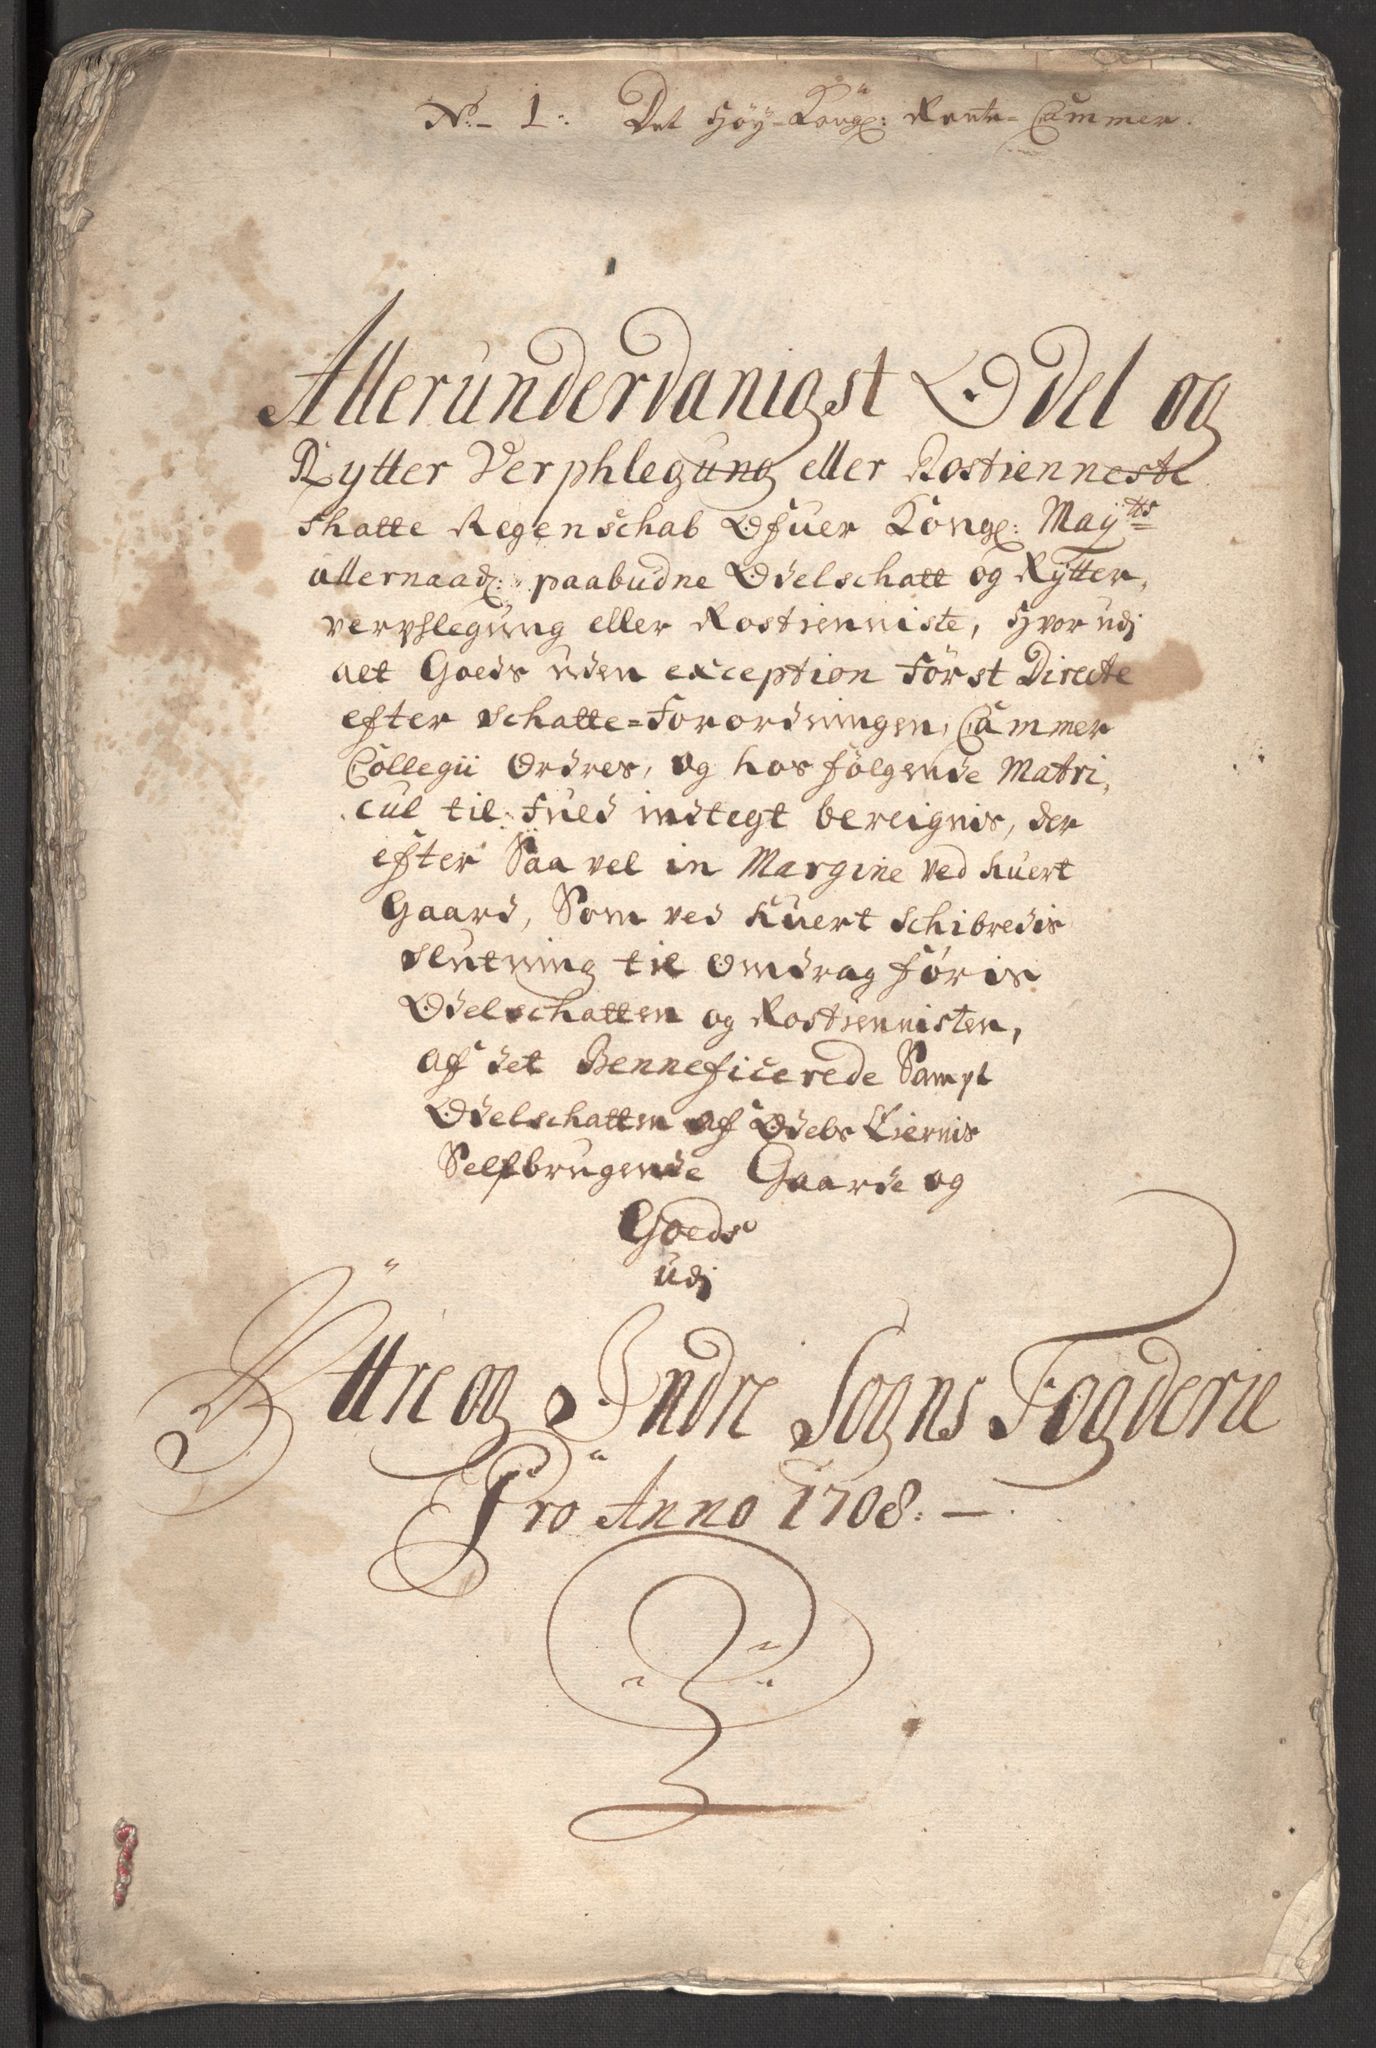 No. 1. Det Höy-Kongl: Rente-Cammer.
Allerunderdanigst Odel og
Rytter Verphlegung eller Rostienneste
skatte Regenschab Ofuer Kongl: Mayts
allernaad: paabudne Odelschatt og Rytter,
verphlegung eller Rostienniste, Hvor udj
alt Goeds uden exception först Directe
efter schatte=forordningen, Cammer
Collegii Ordres, og hos fölgende Matri,
cul til fuld indtegt bereignis, der
efter Saa vel in Margine ved huert
Gaard, Som ved huert Schibredis
slutning til Omdrag föris
Odelschatten og Rostiennisten,
af det Benneficerede Sampt
Odelschatten af Odels Eiernis
Selfbrugende Gaarde og
Goeds
udj
Ÿttre og Indre Sogns Fogderie
Pro Anno 1708. —